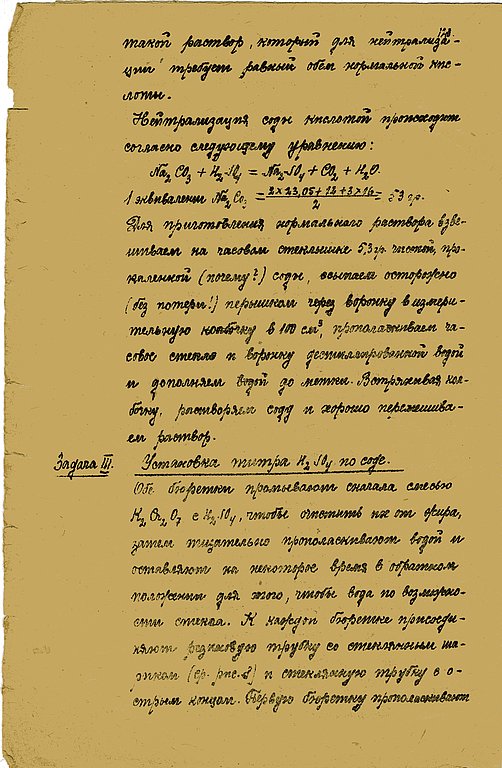 такой раствор, который для нейтрализа-
ции требует равный объем нормальной кис-
лоты.
Нейтрализация соды кислотой происходит
согласно следующему уравнению:
Na₂CO₃ + H₂SO₄ = Na₂SO₄ + CO₂ + H₂O.
1 эквивалент Na₂CO₃ = 2×23,05+12+3×16 / 2 = 53 гр.
Для приготовления нормального раствора взве-
шиваем на часовом стеклышке 5,3 гр. чистой, про-
каленной (почему?) соды, всыпаем осторожно
(без потерь!) перышком через воронку в измери-
тельную колбочку в 100 см³, прополаскиваем ча-
совое стекло и воронку дестиллированной водой
и дополняем водой до метки. Встряхивая кол-
бочку, растворяем соду и хорошо перемешива-
ем раствор.
Задача III. Установка титра H₂SO₄ по соде.
Обе бюретки промывают сначала смесью
K₂Cr₂O₇ с H₂SO₄, чтобы очистить их от жира,
затем тщательно прополаскивают водой и
оставляют на некоторое время в обратном
положении для того, чтобы вода по возможно-
сти стекла. К каждой бюретке присоеди-
няют резиновую трубку со стеклянным ша-
риком (ср. рис. 8) и стеклянную трубку с о-
стрым концом. Первую бюретку прополаскивают